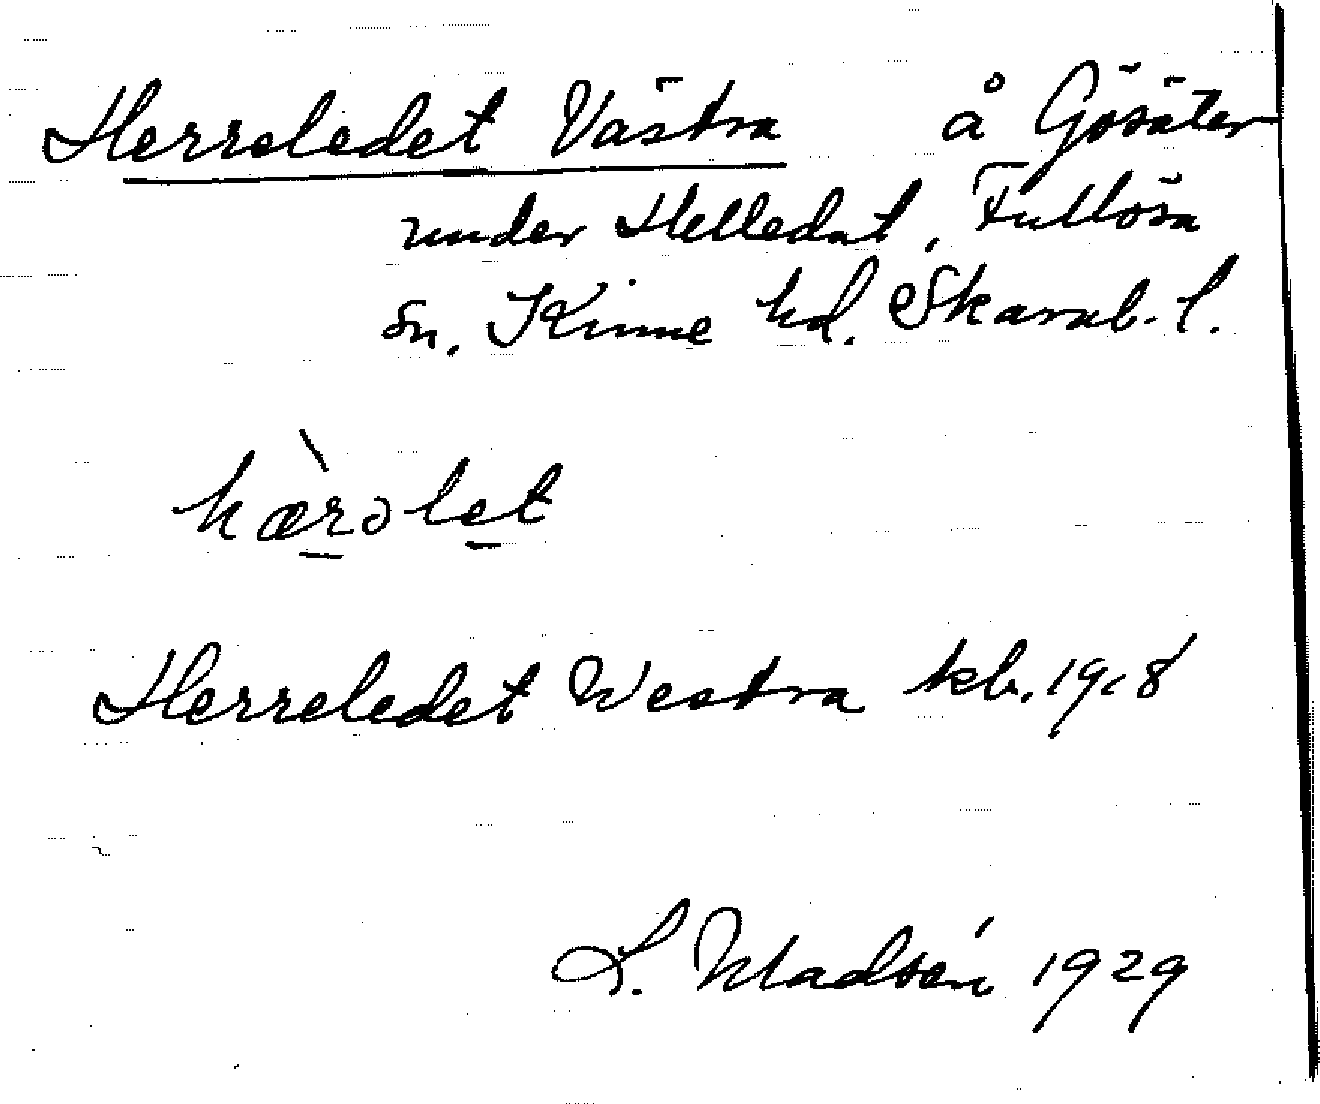 Herreledet Västra å Gösäter
under Helledet, Fullösa
sn. Kinne hd. Skarab. l.
hærəlet
Herreledet Westra kb. 1918
L. Madsén 1929